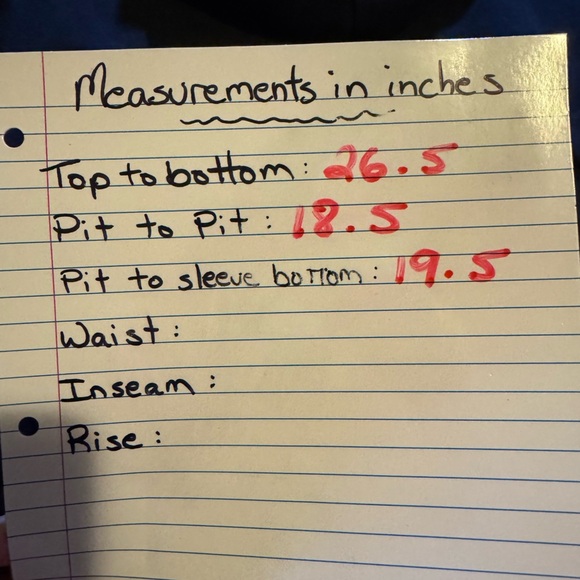 Measurements in inches
Top to bottom: 26.5
Pit to Pit: 18.5
Pit to sleeve bottom: 19.5
Waist:
Inseam:
Rise: